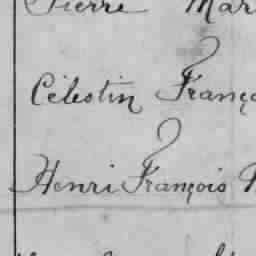 Pierre Mar
Célestin Franço
Henri François